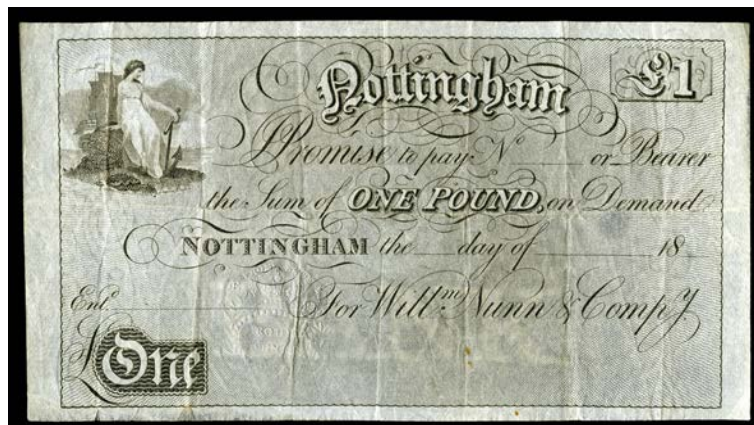 Nottingham £1
I Promise to pay N.º or Bearer
the Sum of ONE POUND, on Demand
NOTTINGHAM the day of 18
Ent.ᵈ For Will.ᵐ Nunn & Comp.y
£ One